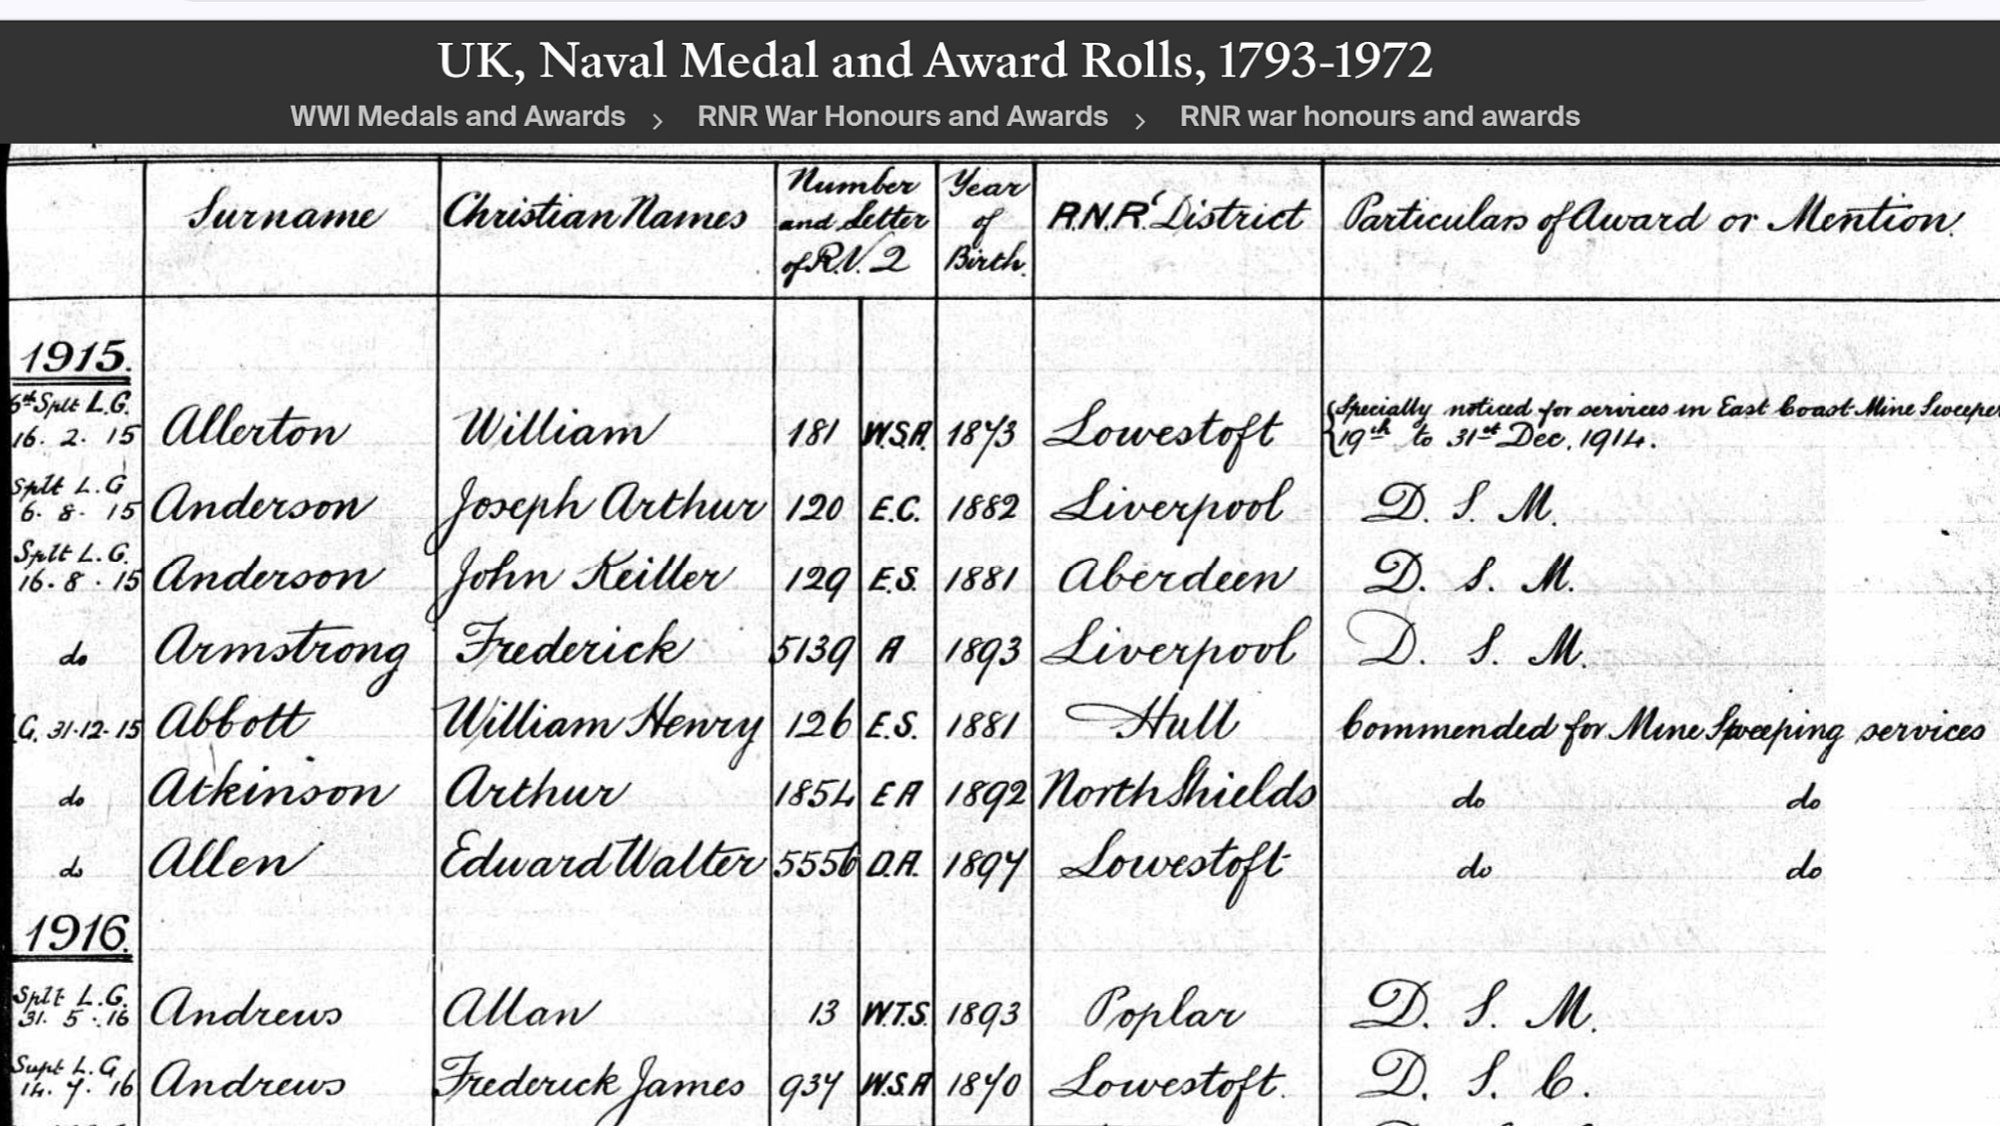 UK, Naval Medal and Award Rolls, 1793-1972
WWI Medals and Awards > RNR War Honours and Awards > RNR war honours and awards
Surname Christian Names Number and Letter of R.V. 2 Year of Birth. R.N.R. District Particulars of Award or Mention.
1915.
6th Splt L.G. 16. 2. 15 Allerton William 181 W.S.A. 1873 Lowestoft Specially noticed for services in East Coast Mine Sweeper
19th to 31st Dec. 1914.
Splt L.G 6. 8. 15 Anderson Joseph Arthur 120 E.C. 1882 Liverpool D. S. M.
Splt L.G. 16. 8. 15 Anderson John Keiller 129 E.S. 1881 Aberdeen D. S. M.
do Armstrong Frederick 5139 A 1893 Liverpool D. S. M.
G. 31-12-15 Abbott William Henry 126 E.S. 1881 Hull Commended for Mine Sweeping services
do Atkinson Arthur 1854 E A 1892 North Shields do do
do Allen Edward Walter 5556 D.A. 1897 Lowestoft do do
1916.
Splt L.G. 31. 5. 16 Andrews Allan 13 W.T.S. 1893 Poplar D. S. M.
Supt L.G 14. 7. 16 Andrews Frederick James 937 W.S.A 1870 Lowestoft. D. S. C.